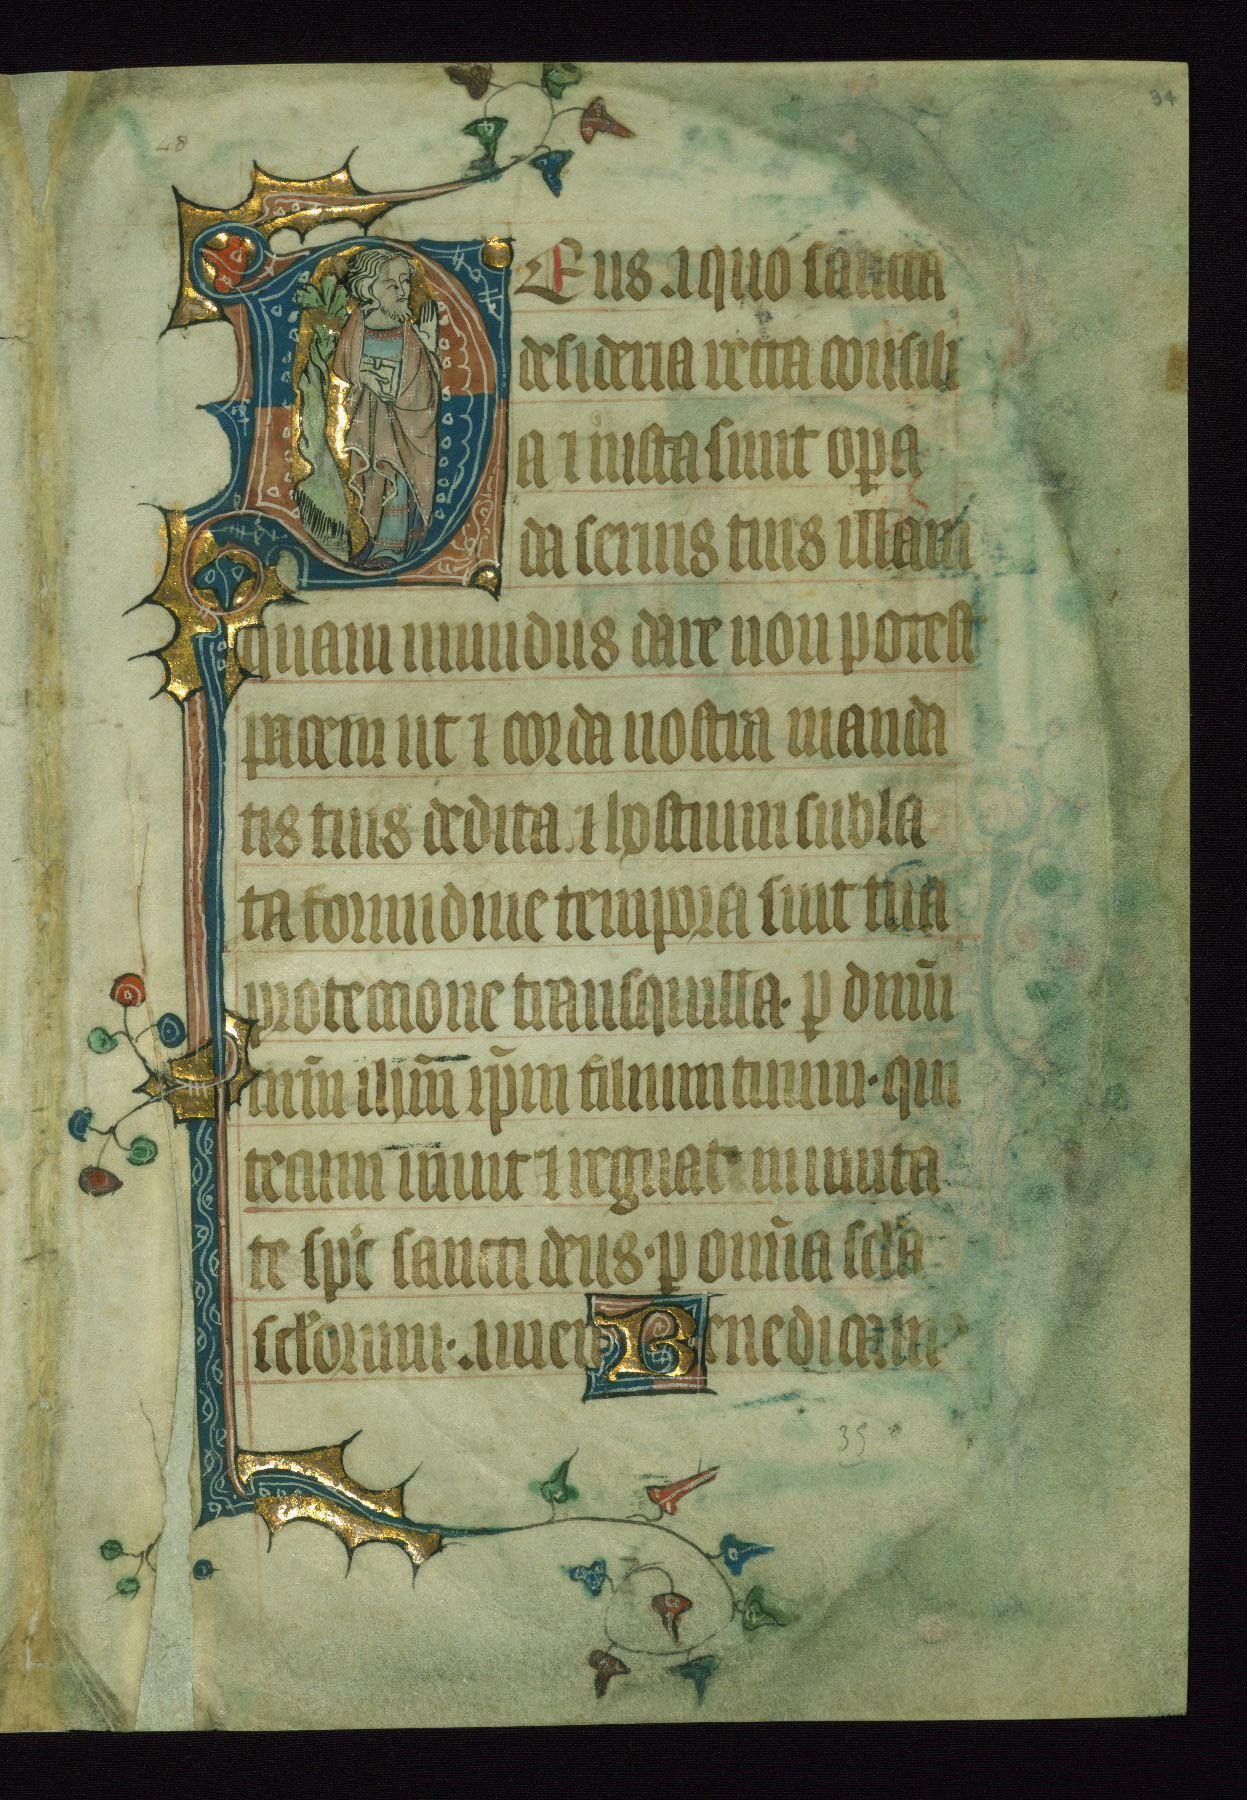 34
28
DEus .a quo sancta
desideria recta consili
a ⁊ iusta sunt opa
da seruis tuis illam
quam mundus dare non potest
pacem ut ⁊ corda nostra manda
tis tuis dedita .⁊ hostium subla
ta formidine tempora sint tua
protectione transquilla· ꝑ dnm̄
nrm̄ ihm̄ xpm̄ filium tuum· qui
tecum uiuit ⁊ regnat in unita
te spc̄ sancti deus· ꝑ omīa scl̄a
scl̄orum· .amen Benedicam
35